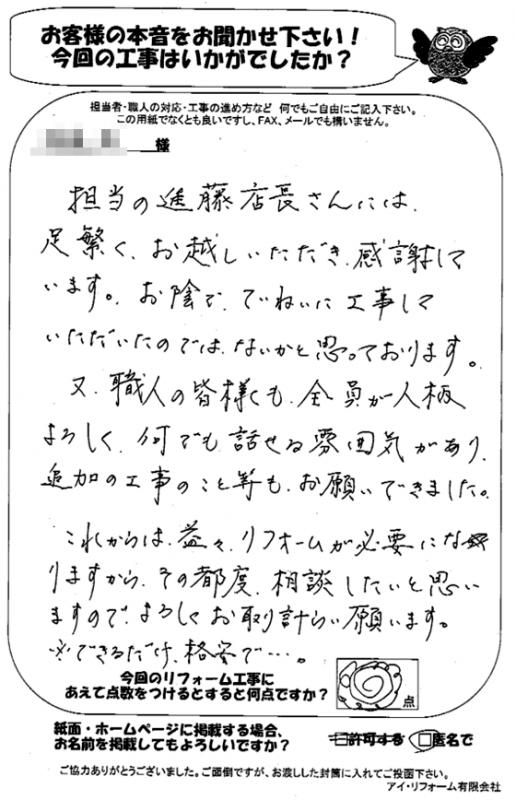 お客様の本音をお聞かせ下さい！
今回の工事はいかがでしたか？
担当者・職人の対応・工事の進め方など 何でもご自由にご記入下さい。
この用紙でなくとも良いですし、FAX、メールでも構いません。
様
担当の進藤店長さんには、
足繁く、お越しいただき、感謝して
います。お陰で、ていねいに工事して
いただいたのでは、ないかと思っております。
又、職人の皆様も、全員が人板
よろしく、何でも話せる雰囲気があり、
追加の工事のこと等も、お願いできました。
これからは、益々、リフォームが必要にな
りますから、その都度、相談したいと思い
ますので、よろしくお取り計らい願います。
※できるだけ、格安で…。
今回のリフォーム工事に
あえて点数をつけるとすると何点ですか？
点
紙面・ホームページに掲載する場合、
お名前を掲載してもよろしいですか？
□許可する □匿名で
ご協力ありがとうございました。ご面倒ですが、お渡しした封筒に入れてご投函下さい。
アイ・リフォーム有限会社